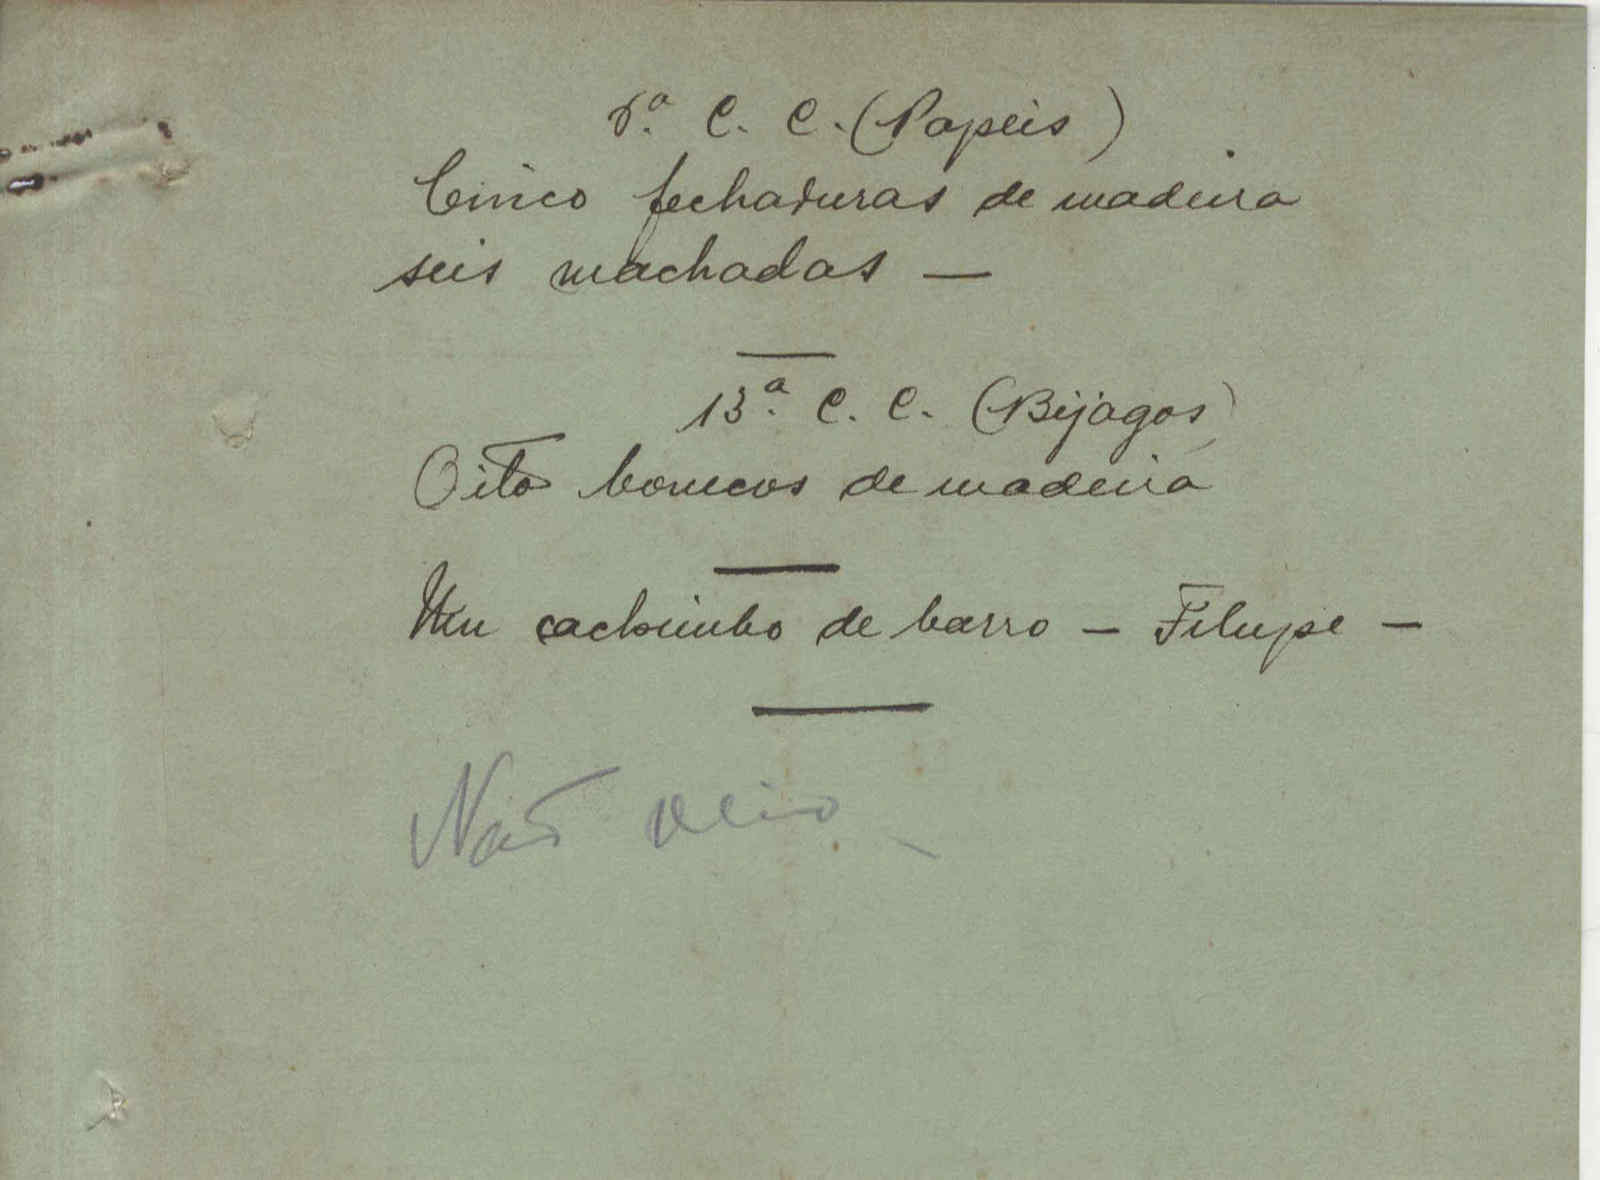 6.ª C. C. (Papeis)
Cinco fechaduras de madeira
seis machadas —
13.ª C. C. (Bijagos)
Oito bonecos de madeira
Um cachimbo de barro — Felupe —
Não veio